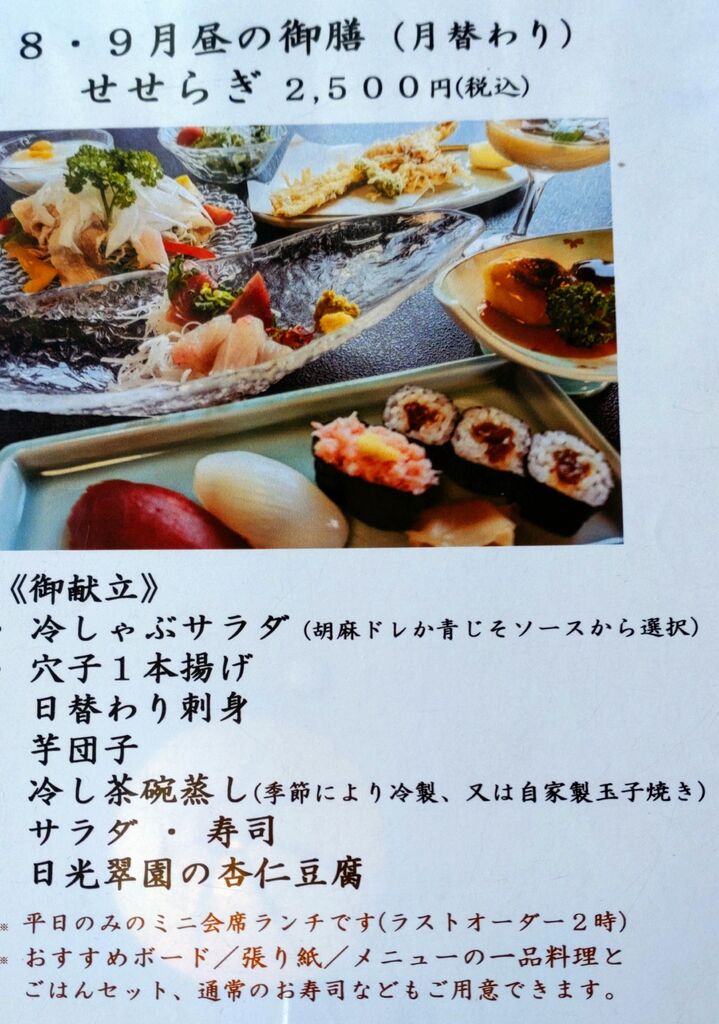 8・9月昼の御膳(月替わり)
せせらぎ 2,500円(税込)
《御献立》
・ 冷しゃぶサラダ(胡麻ドレか青じそソースから選択)
・ 穴子1本揚げ
日替わり刺身
芋団子
冷し茶碗蒸し(季節により冷製、又は自家製玉子焼き)
サラダ・寿司
日光翠園の杏仁豆腐
※ 平日のみのミニ会席ランチです(ラストオーダー2時)
※ おすすめボード/張り紙/メニューの一品料理と
ごはんセット、通常のお寿司などもご用意できます。